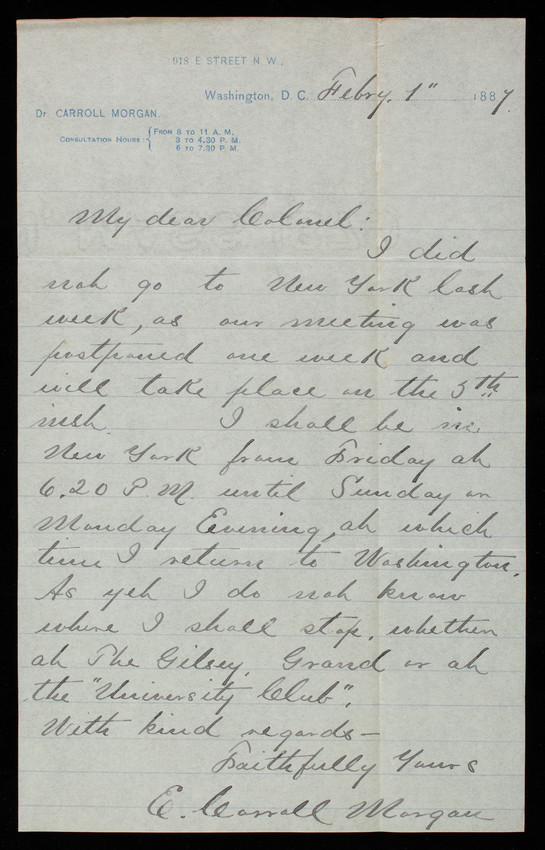 918 E STREET N. W.,
Washington, D. C. Febry. 1" 1887.
Dr. CARROLL MORGAN.
CONSULTATION HOURS: { FROM 8 TO 11 A. M.
3 TO 4.30 P. M.
6 TO 7.30 P. M.
My dear Colonel:
I did
not go to New York last
week, as our meeting was
postponed one week and
will take place on the 5th
inst. I shall be in
New York from Friday at
6.20 P.M. until Sunday or
Monday Evening, at which
time I return to Washington.
As yet I do not know
where I shall stop, whether
at The Gilsey, Grand or at
the "University Club".
With kind regards—
Faithfully Yours
E. Carroll Morgan